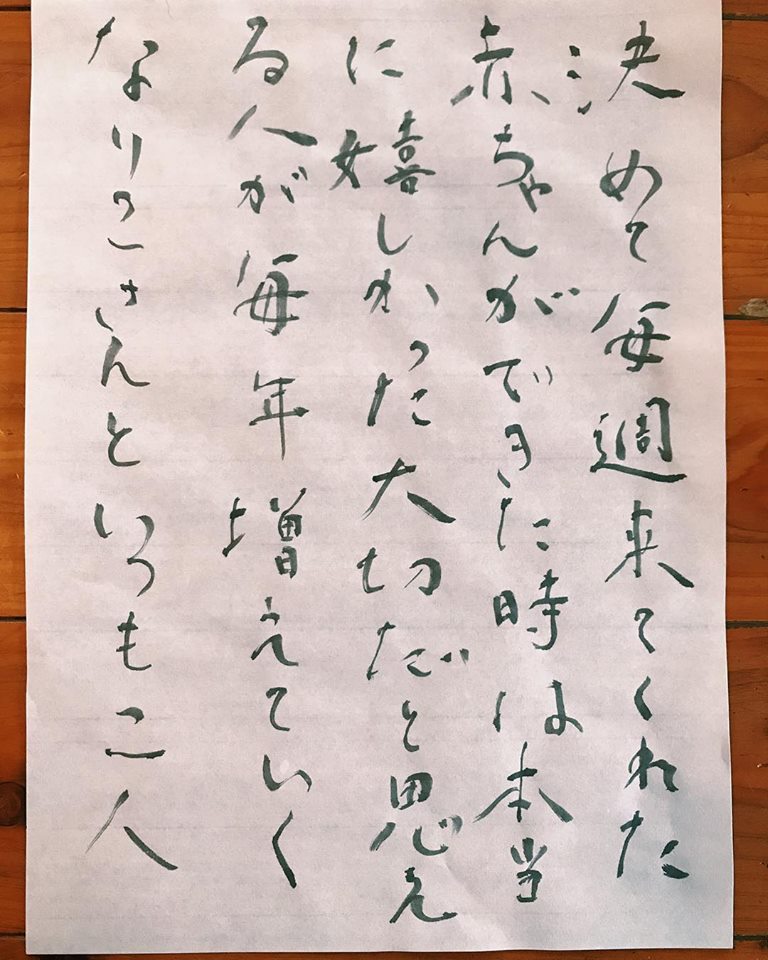 決めて毎週来てくれた
赤ちゃんができた時は本当
に嬉しかった大切だと思え
る人が毎年増えていく
なりこさんといつも二人